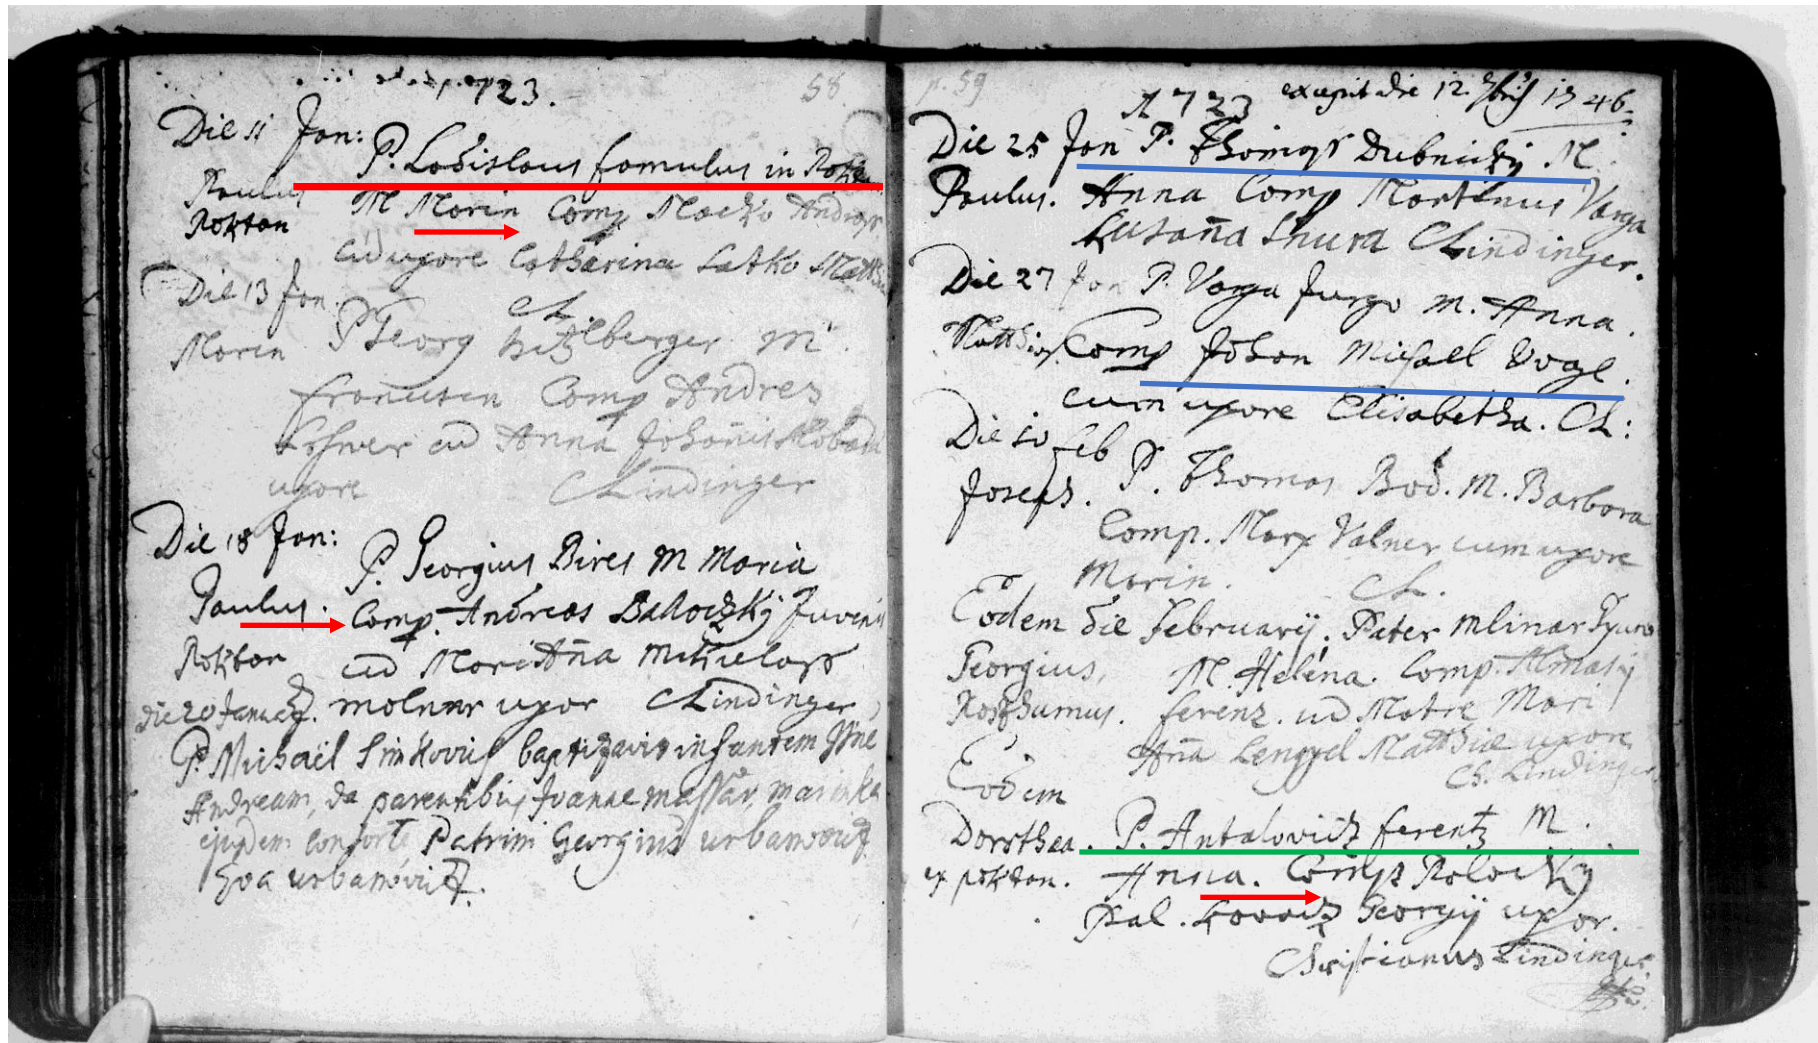 1723.
58
Die 11 Jan:
P. Ladislaus famulus in Rokton
Paulus
Rokton
M Marin Comp Maczko Andreas
cu uxore Catharina Latko Matthiae
CL.
Die 13 Jan.
Marin
P Georg hitzlberger M.
francisca Comp Andres
Lehner cu Anna Johannis
uxore CLindinger
Die 18 Jan:
P. Georgius Bires M Maria
Paulus.
Rokton
Comp. Andreas Badoczky Juvenis
cu Mari Anna Mihielasz
molnar uxor CLindinger
Die 20 January.
P. Michael Sinkovis baptizavit infantem
Andream, da parentibus Joanne massar, marinka
ejusdem consorte Patrini Georgius urbanovicz
Eva urbanovicz.
p. 59
1723
die 12. 1746.
Die 25 Jan P. Thomas Dubniczky M.
Paulus. Anna Comp Martinus Varga
Susanna Snura CLindinger.
Die 27 Jan P. Varga Jurgo M. Anna.
Matthias. Comp Johan Michael Vogl.
cum uxore Elisabetha. CL:
Die 10 feb
Joseph. P. Thomas Bod. M. Barbora
Comp. Marx Valner cum uxore
Marin. CL.
Eodem die February. Pater Mlinar Gyuro
Georgius, M. Helena. Comp. Almasy
Posthumus. ferenz. cu Matre Mari
Anna Lengyel Matthiae uxore
Ch. Lindinger
Eodem
Dorothea. P. Antalovicz ferentz M.
ex pokton. Anna. Comp Poloczky
Pal. Kovacz Georgy uxor.
Christianus Lindinger.